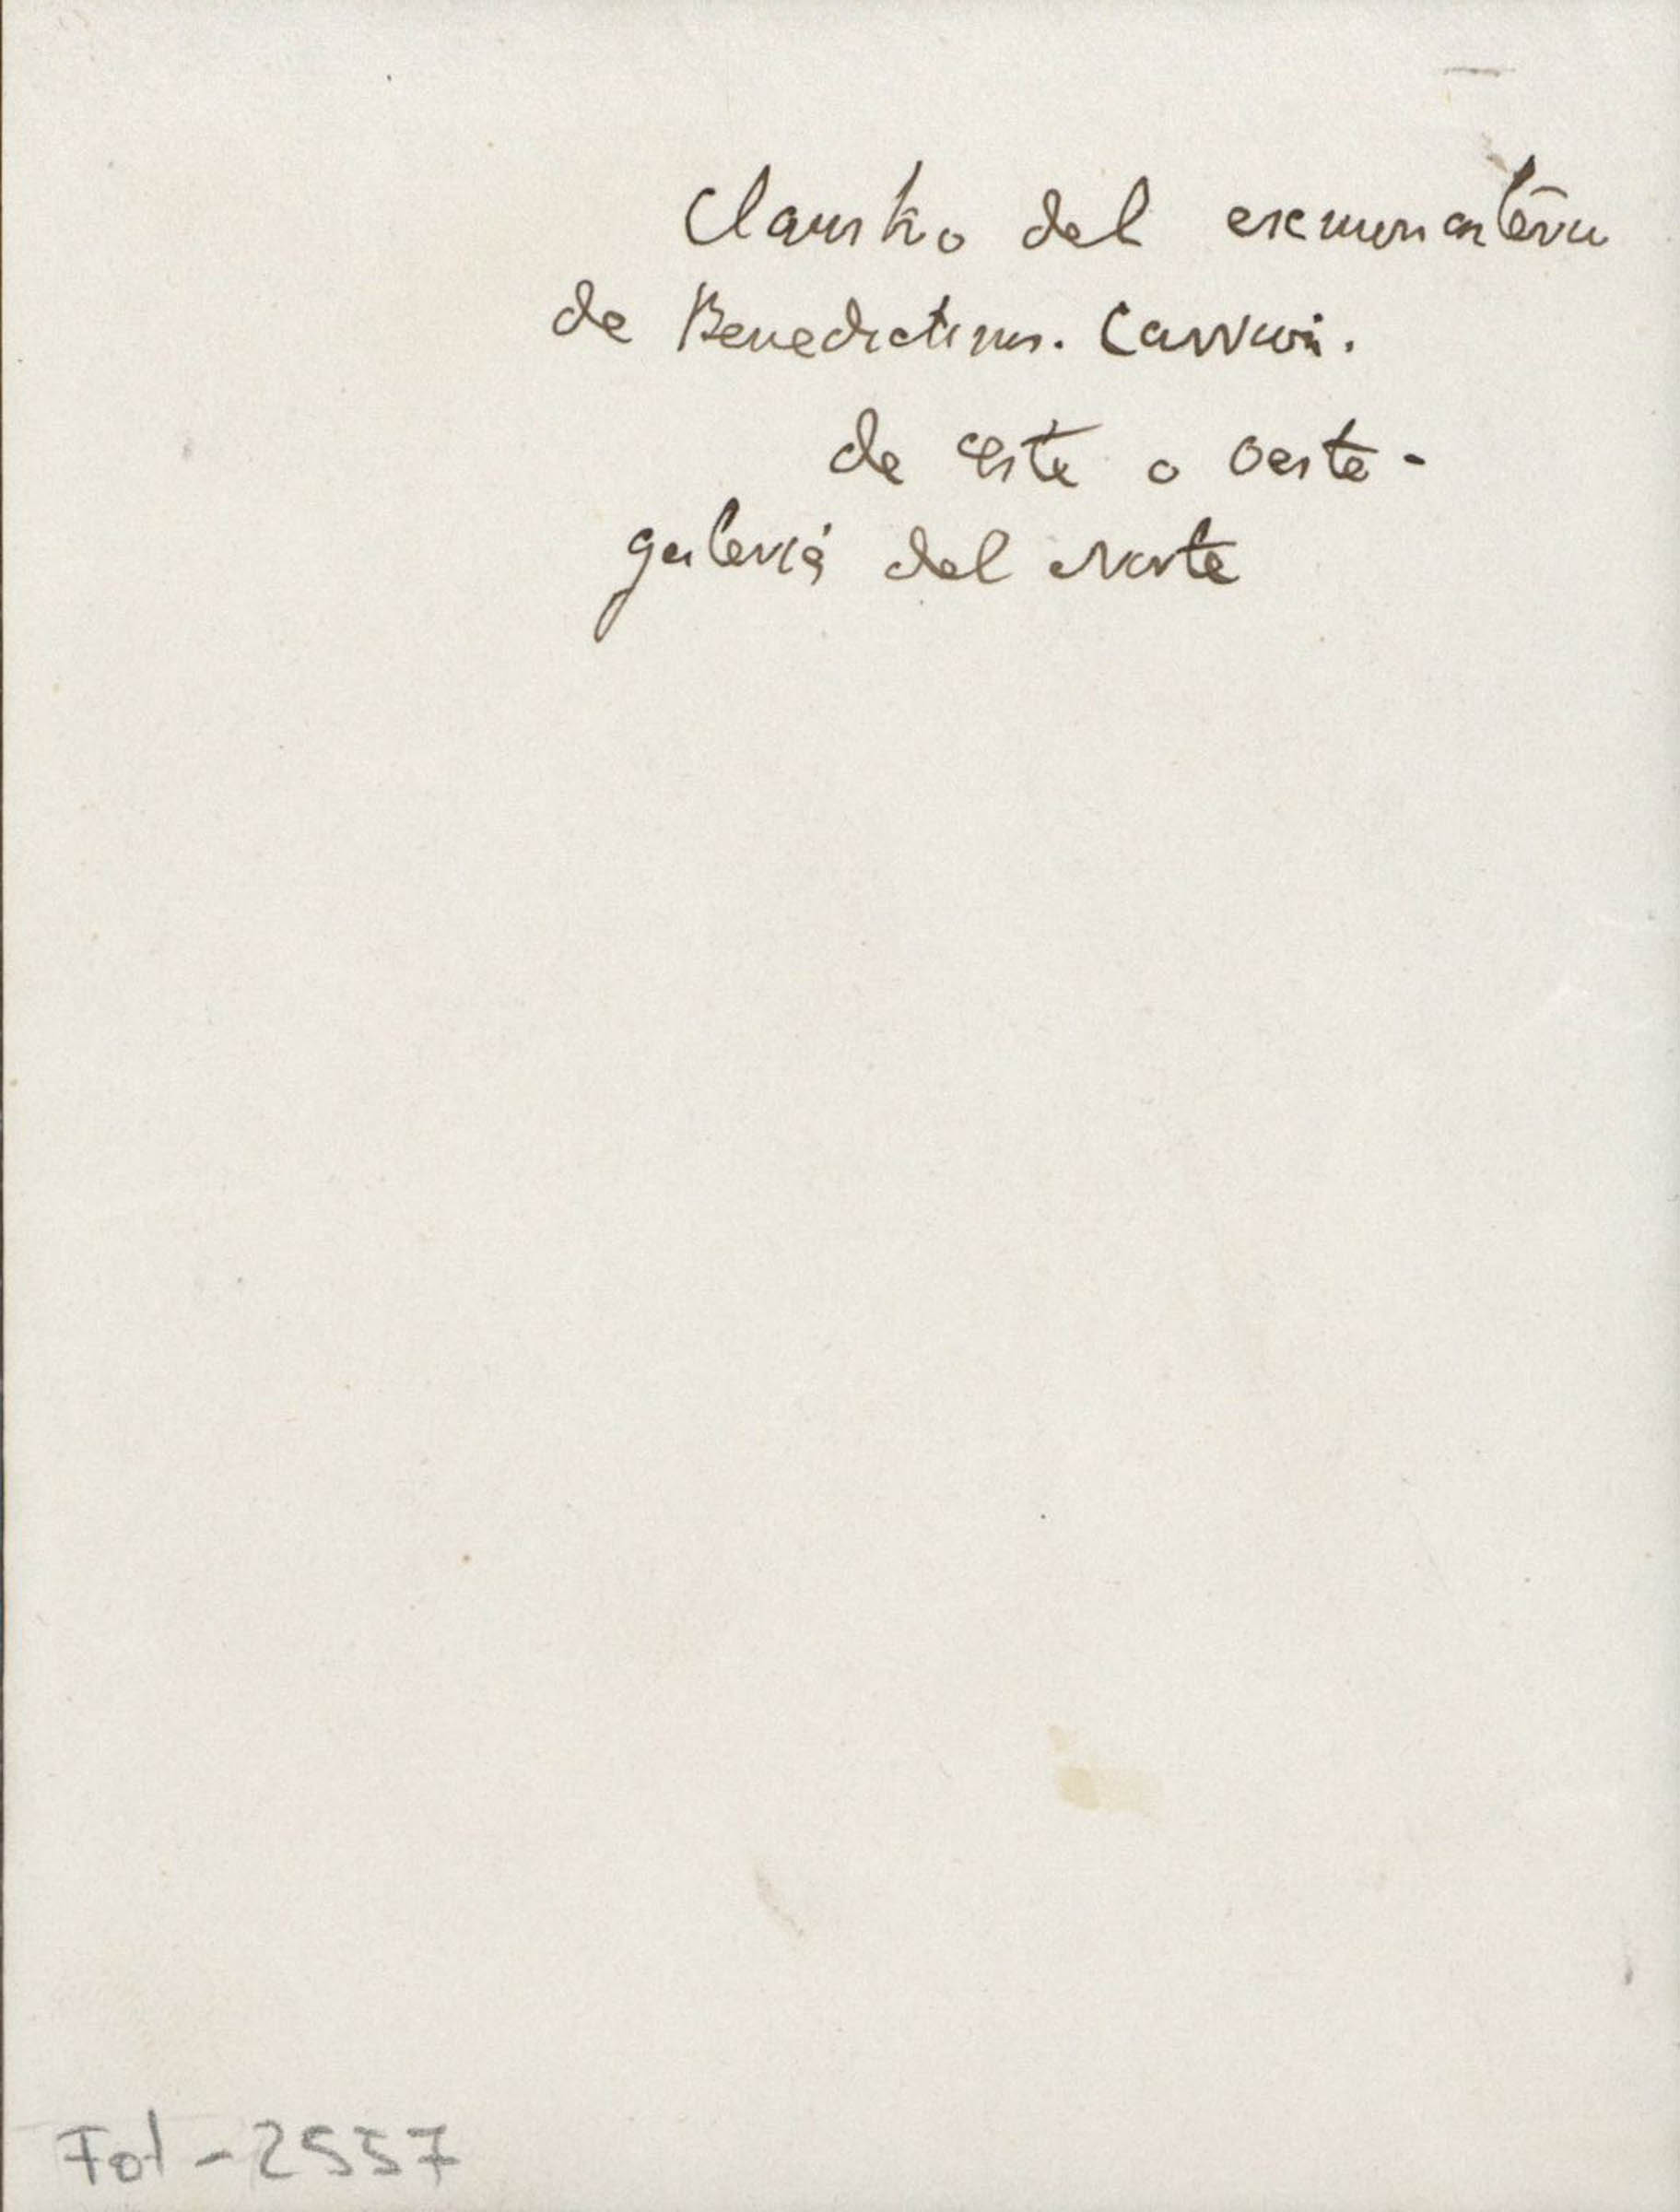 Claustro del exmonasterio
de Benedictinos. Carrión.
de este a oeste -
galería del Norte
Fot - 2557